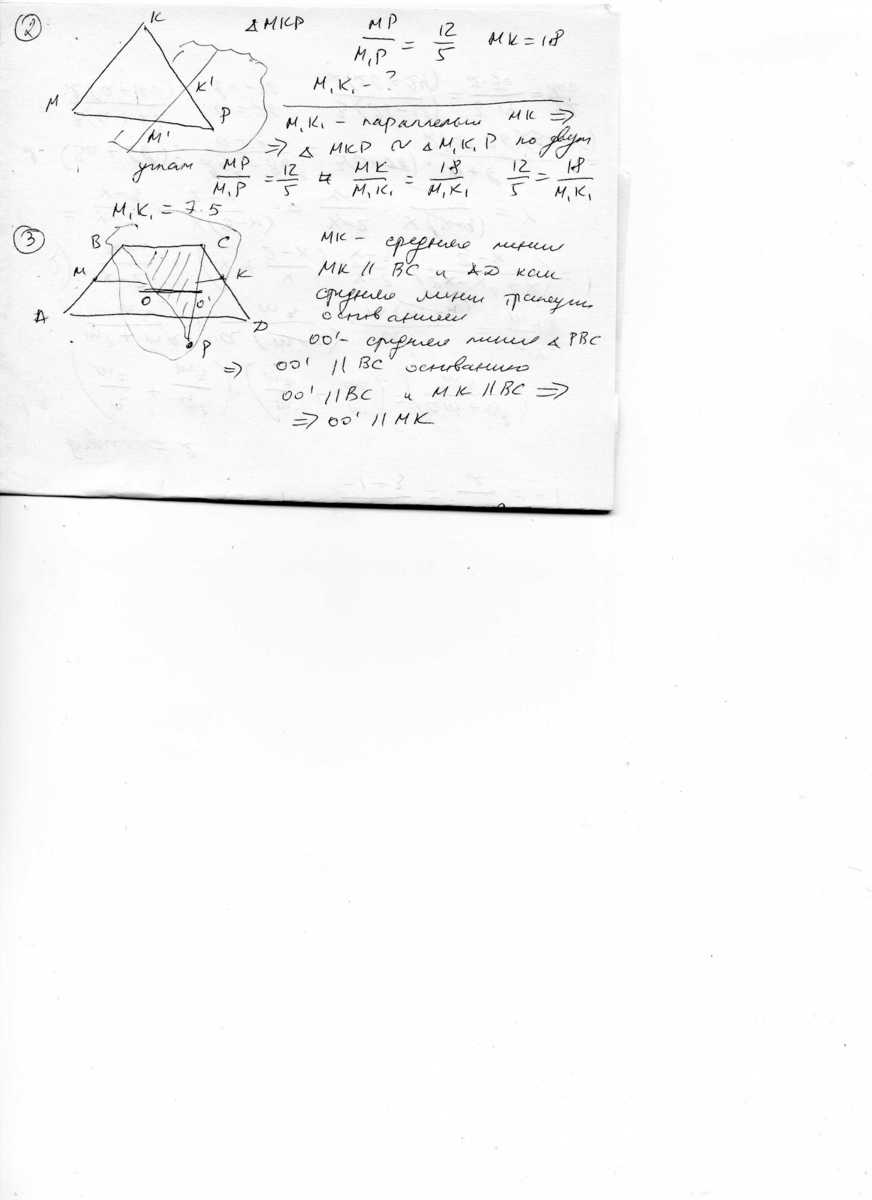 2
K
M
K'
P
M'
△ MKP
MP/M₁P = 12/5 MK = 18
M₁K₁ - ?
M₁K₁ - параллельны MK ⇒
⇒ △ MKP ~ △ M₁K₁P по двум
углам MP/M₁P = 12/5 MK/M₁K₁ = 18/M₁K₁ 12/5 = 18/M₁K₁
M₁K₁ = 7.5
3
B
C
M
K
O
O'
A
D
P
MK - средняя линия
MK || BC и AD как
средняя линия трапеции
основаниям
OO' - средняя линия △ PBC
⇒ OO' || BC основанию
OO' || BC и MK || BC ⇒
⇒ OO' || MK